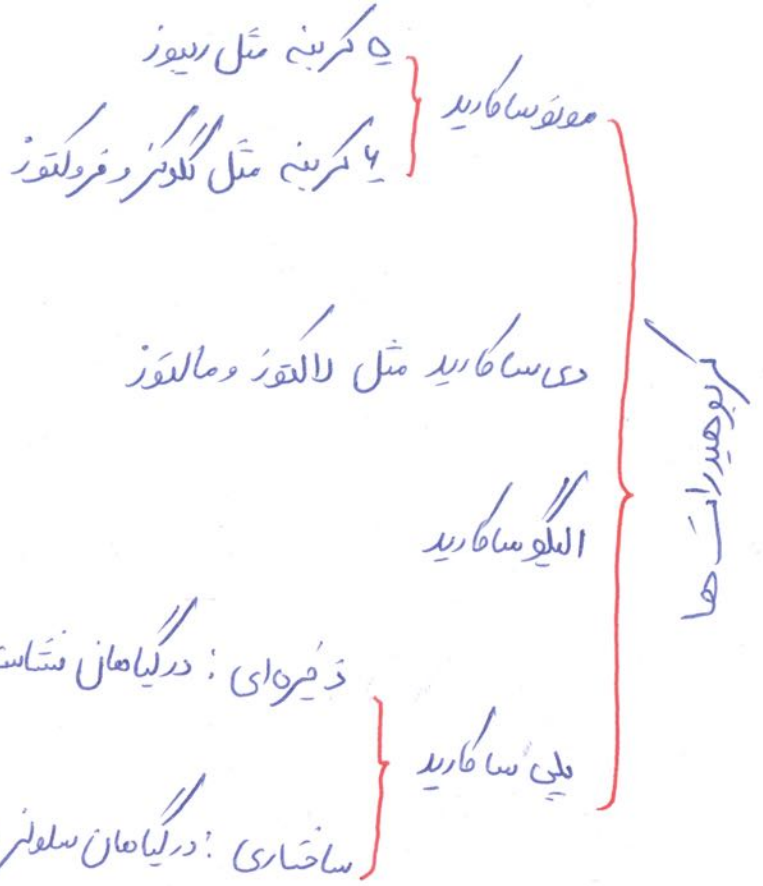 کربوهیدرات ها
مونوساکارید
۵ کربنه مثل ریبوز
۶ کربنه مثل گلوکز و فروکتوز
دی ساکارید مثل لاکتوز و مالتوز
الیگوساکارید
پلی ساکارید
ذخیره‌ای : در گیاهان نشاست
ساختاری : در گیاهان سلولز